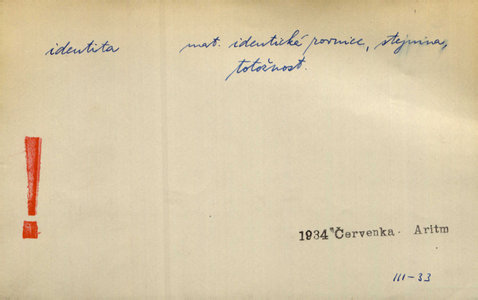 identita mat. identické rovnice, stejnina,
totožnost.
!
1934 Červenka - Aritm
III-33